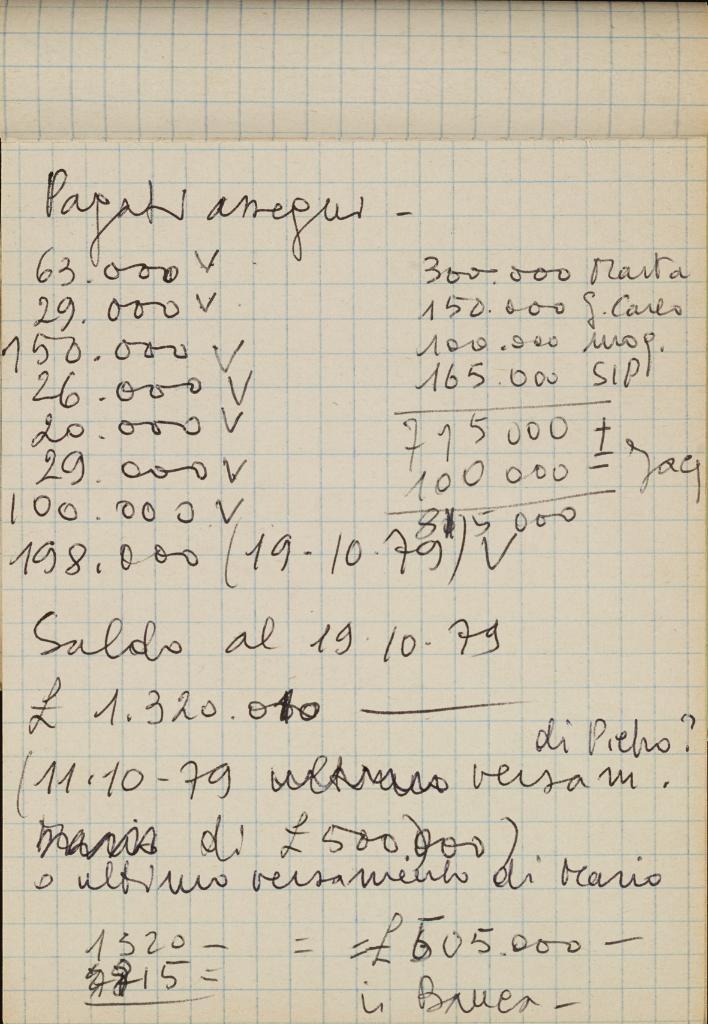 Pagati assegni -
63.000 V
29.000 V
150.000 V
26.000 V
20.000 V
29.000 V
100.000 V
198.000 (19-10-79) V
300.000 Marta
150.000 G. Carlo
100.000 mog.
165.000 SIP
715 000 +
100 000 =
815 000
Saldo al 19.10.79
£ 1.320.010
di Pietro?
(11.10-79 ultimo versam.
di £ 500.000)
o ultimo versamento di Mario
1320 - = = £ 605.000 -
715 =
in Banca -